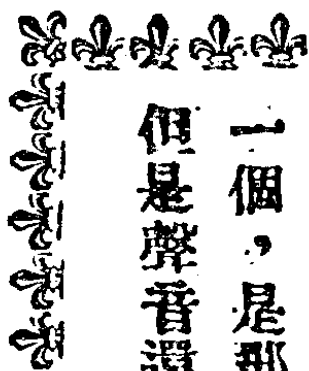 一個，是那
但是聲音還